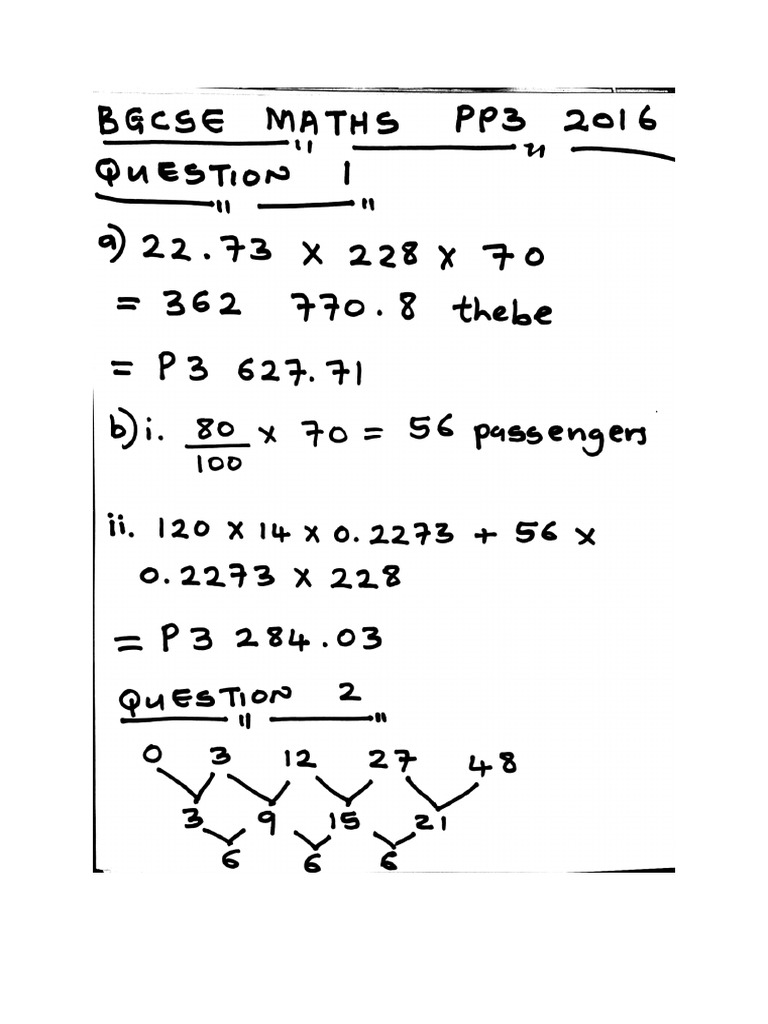 BGCSE MATHS PP3 2016
QUESTION 1
a) 22.73 x 228 x 70
= 362 770.8 thebe
= P3 627.71
b) i. 80/100 x 70 = 56 passengers
ii. 120 x 14 x 0.2273 + 56 x
0.2273 x 228
= P3 284.03
QUESTION 2
0 3 12 27 48
3 9 15 21
6 6 6